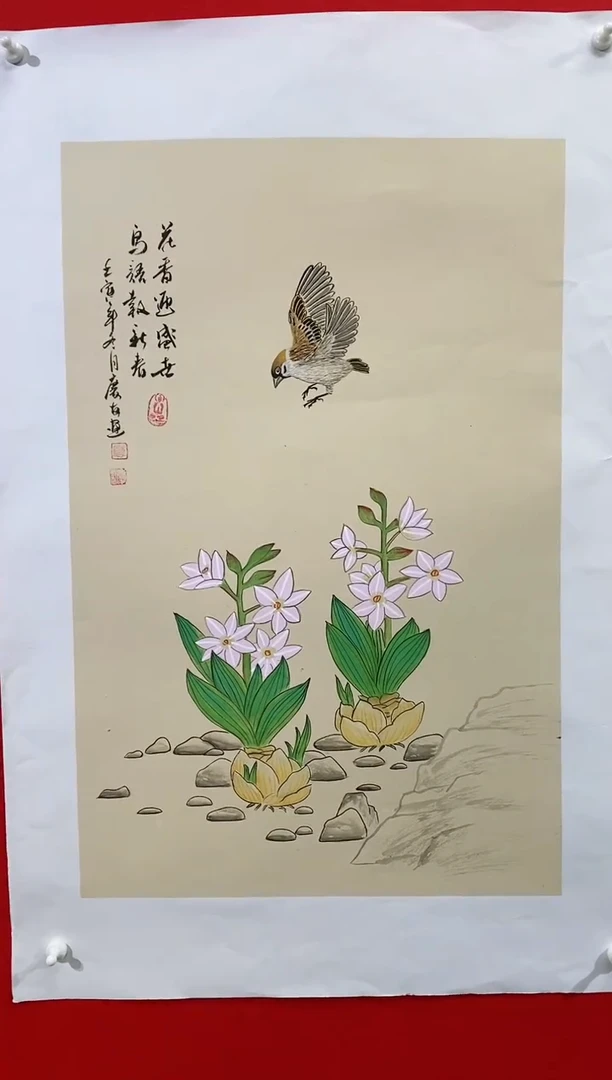 花香迎盛世
鸟语报新春
壬寅年冬月庆有画